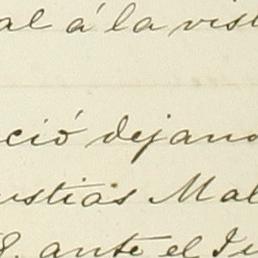 al á la vist
ció dejano
ustias Mal
8. ante el Ju